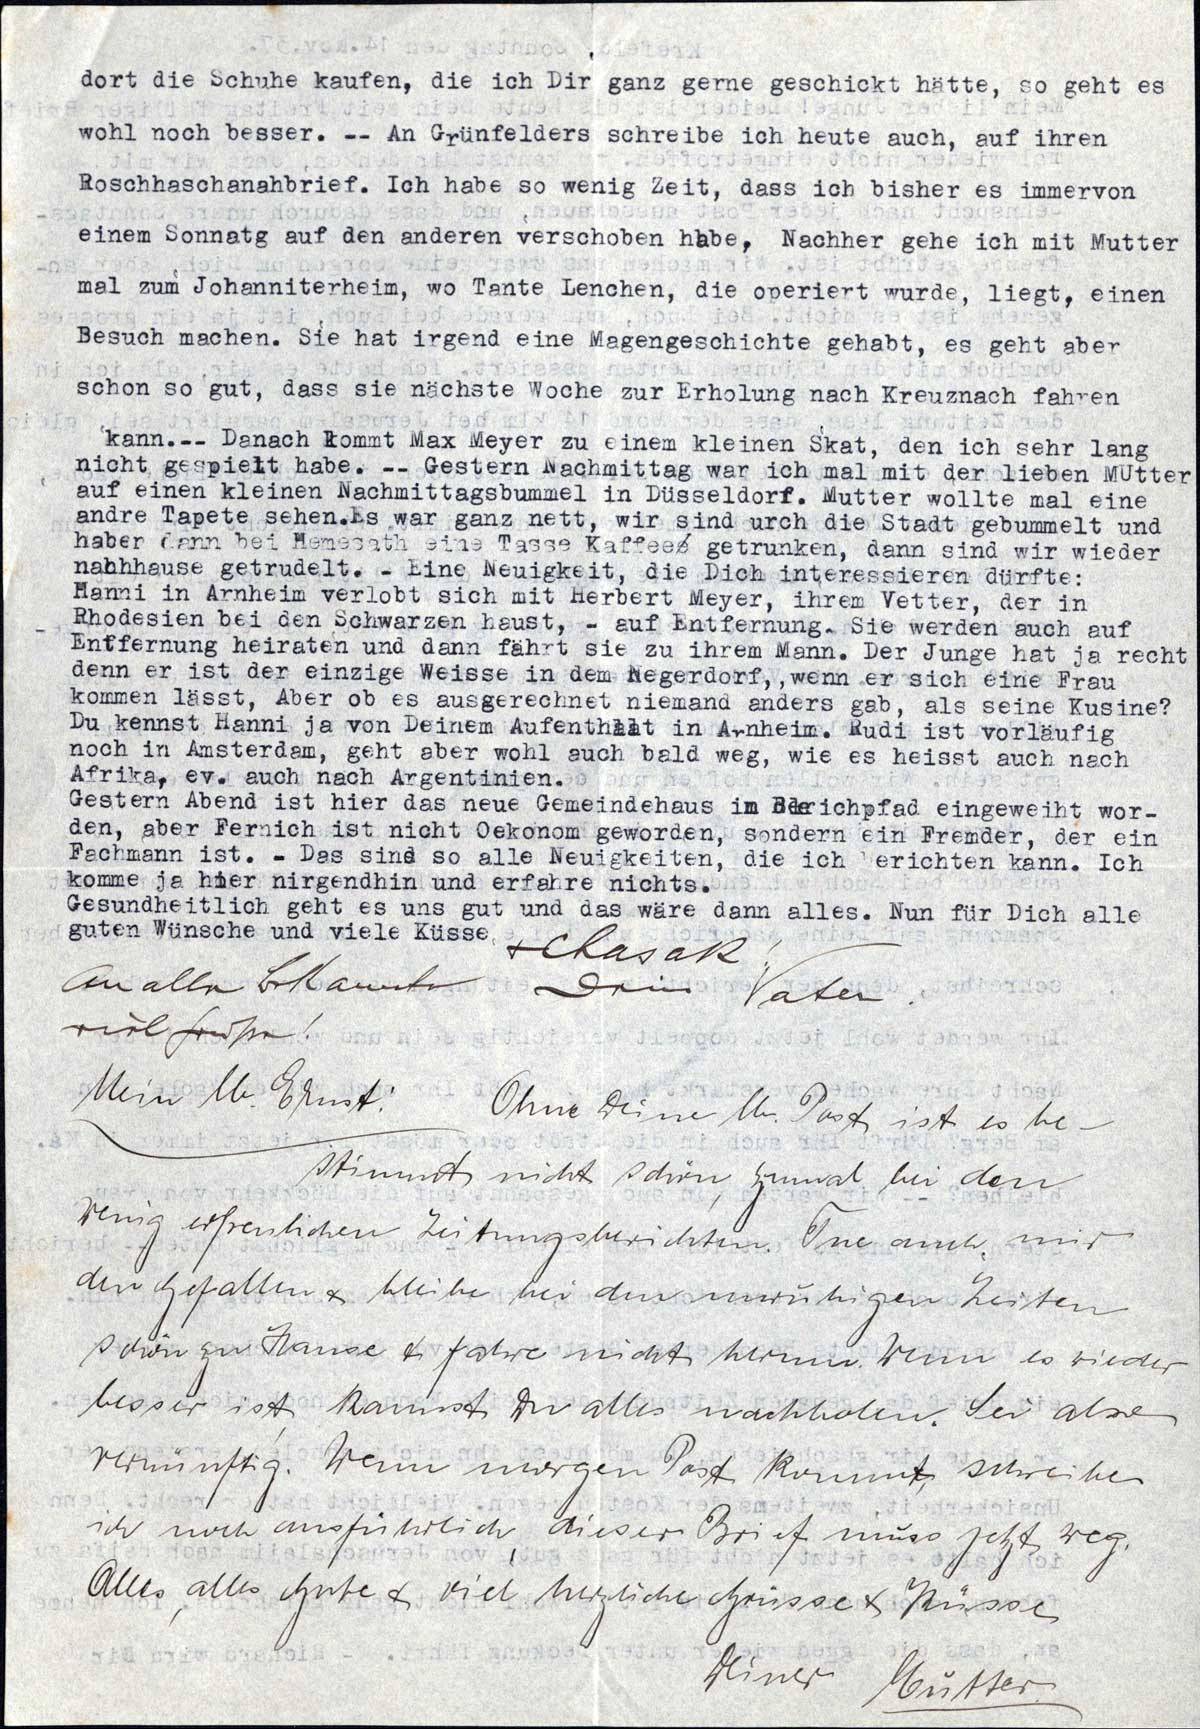 dort die Schuhe kaufen, die ich Dir ganz gerne geschickt hätte, so geht es
wohl noch besser. -- An Grünfelders schreibe ich heute auch, auf ihren
Roschhaschanahbrief. Ich habe so wenig Zeit, dass ich bisher es immervon
einem Sonnatg auf den anderen verschoben habe, Nachher gehe ich mit Mutter
mal zum Johanniterheim, wo Tante Lenchen, die operiert wurde, liegt, einen
Besuch machen. Sie hat irgend eine Magengeschichte gehabt, es geht aber
schon so gut, dass sie nächste Woche zur Erholung nach Kreuznach fahren
kann.-- Danach kommt Max Meyer zu einem kleinen Skat, den ich sehr lang
nicht gespielt habe. -- Gestern Nachmittag war ich mal mit der lieben MUtter
auf einen kleinen Nachmittagsbummel in Düsseldorf. Mutter wollte mal eine
andre Tapete sehen.Es war ganz nett, wir sind urch die Stadt gebummelt und
haber dann bei Hemesath eine Tasse Kaffee getrunken, dann sind wir wieder
nachhause getrudelt. - Eine Neuigkeit, die Dich interessieren dürfte:
Hanni in Arnheim verlobt sich mit Herbert Meyer, ihrem Vetter, der in
Rhodesien bei den Schwarzen haust, - auf Entfernung. Sie werden auch auf
Entfernung heiraten und dann fährt sie zu ihrem Mann. Der Junge hat ja recht
denn er ist der einzige Weisse in dem Negerdorf,,wenn er sich eine Frau
kommen lässt, Aber ob es ausgerechnet niemand anders gab, als seine Kusine?
Du kennst Hanni ja von Deinem Aufenthalt in Arnheim. Rudi ist vorläufig
noch in Amsterdam, geht aber wohl auch bald weg, wie es heisst auch nach
Afrika, ev. auch nach Argentinien.
Gestern Abend ist hier das neue Gemeindehaus im eingeweiht wor-
den, aber Fernich ist nicht Oekonom geworden, sondern ein Fremder, der ein
Fachmann ist. - Das sind so alle Neuigkeiten, die ich berichten kann. Ich
komme ja hier nirgendhin und erfahre nichts.
Gesundheitlich geht es uns gut und das wäre dann alles. Nun für Dich alle
guten Wünsche und viele Küsse
+ Chasak!
An alle Bekannte Dein Vater.
viel Grüße!
Mein lb. Ernst! Ohne Deine lb. Post ist es be-
stimmt nicht schön, zumal bei den
wenig erfreulichen Zeitungsberichten. Tue auch mir
den Gefallen & bleibe bei den unruhigen Zeiten
schön zu Hause & fahre nicht herum. Wenn es wieder
besser ist, kannst Du alles nachholen. Sei also
vernünftig. Wenn morgen Post kommt, schreibe
ich noch ausführlich, dieser Brief muss jetzt weg.
Alles, alles Gute & viel herzliche Grüsse & Küsse
Deiner Mutter.